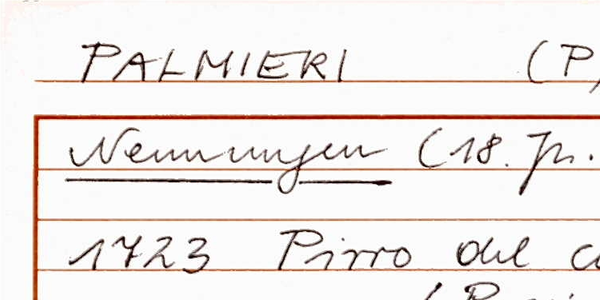 PALMIERI (P
Nennungen (18. Jh.
1723 Pirro del c